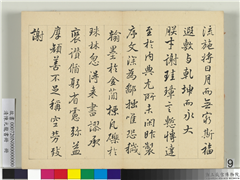 法施將日月而無窮斯福
遐敷與乾坤而永大
朕才謝珪璋言慚博達
至於內典尤所未閑昨製
序文深為鄙拙唯恐穢
翰墨於金簡標瓦礫於
珠林忽得来書謬承
褒讚循躬省慮弥益
厚顏善不足稱空勞致
謝
9